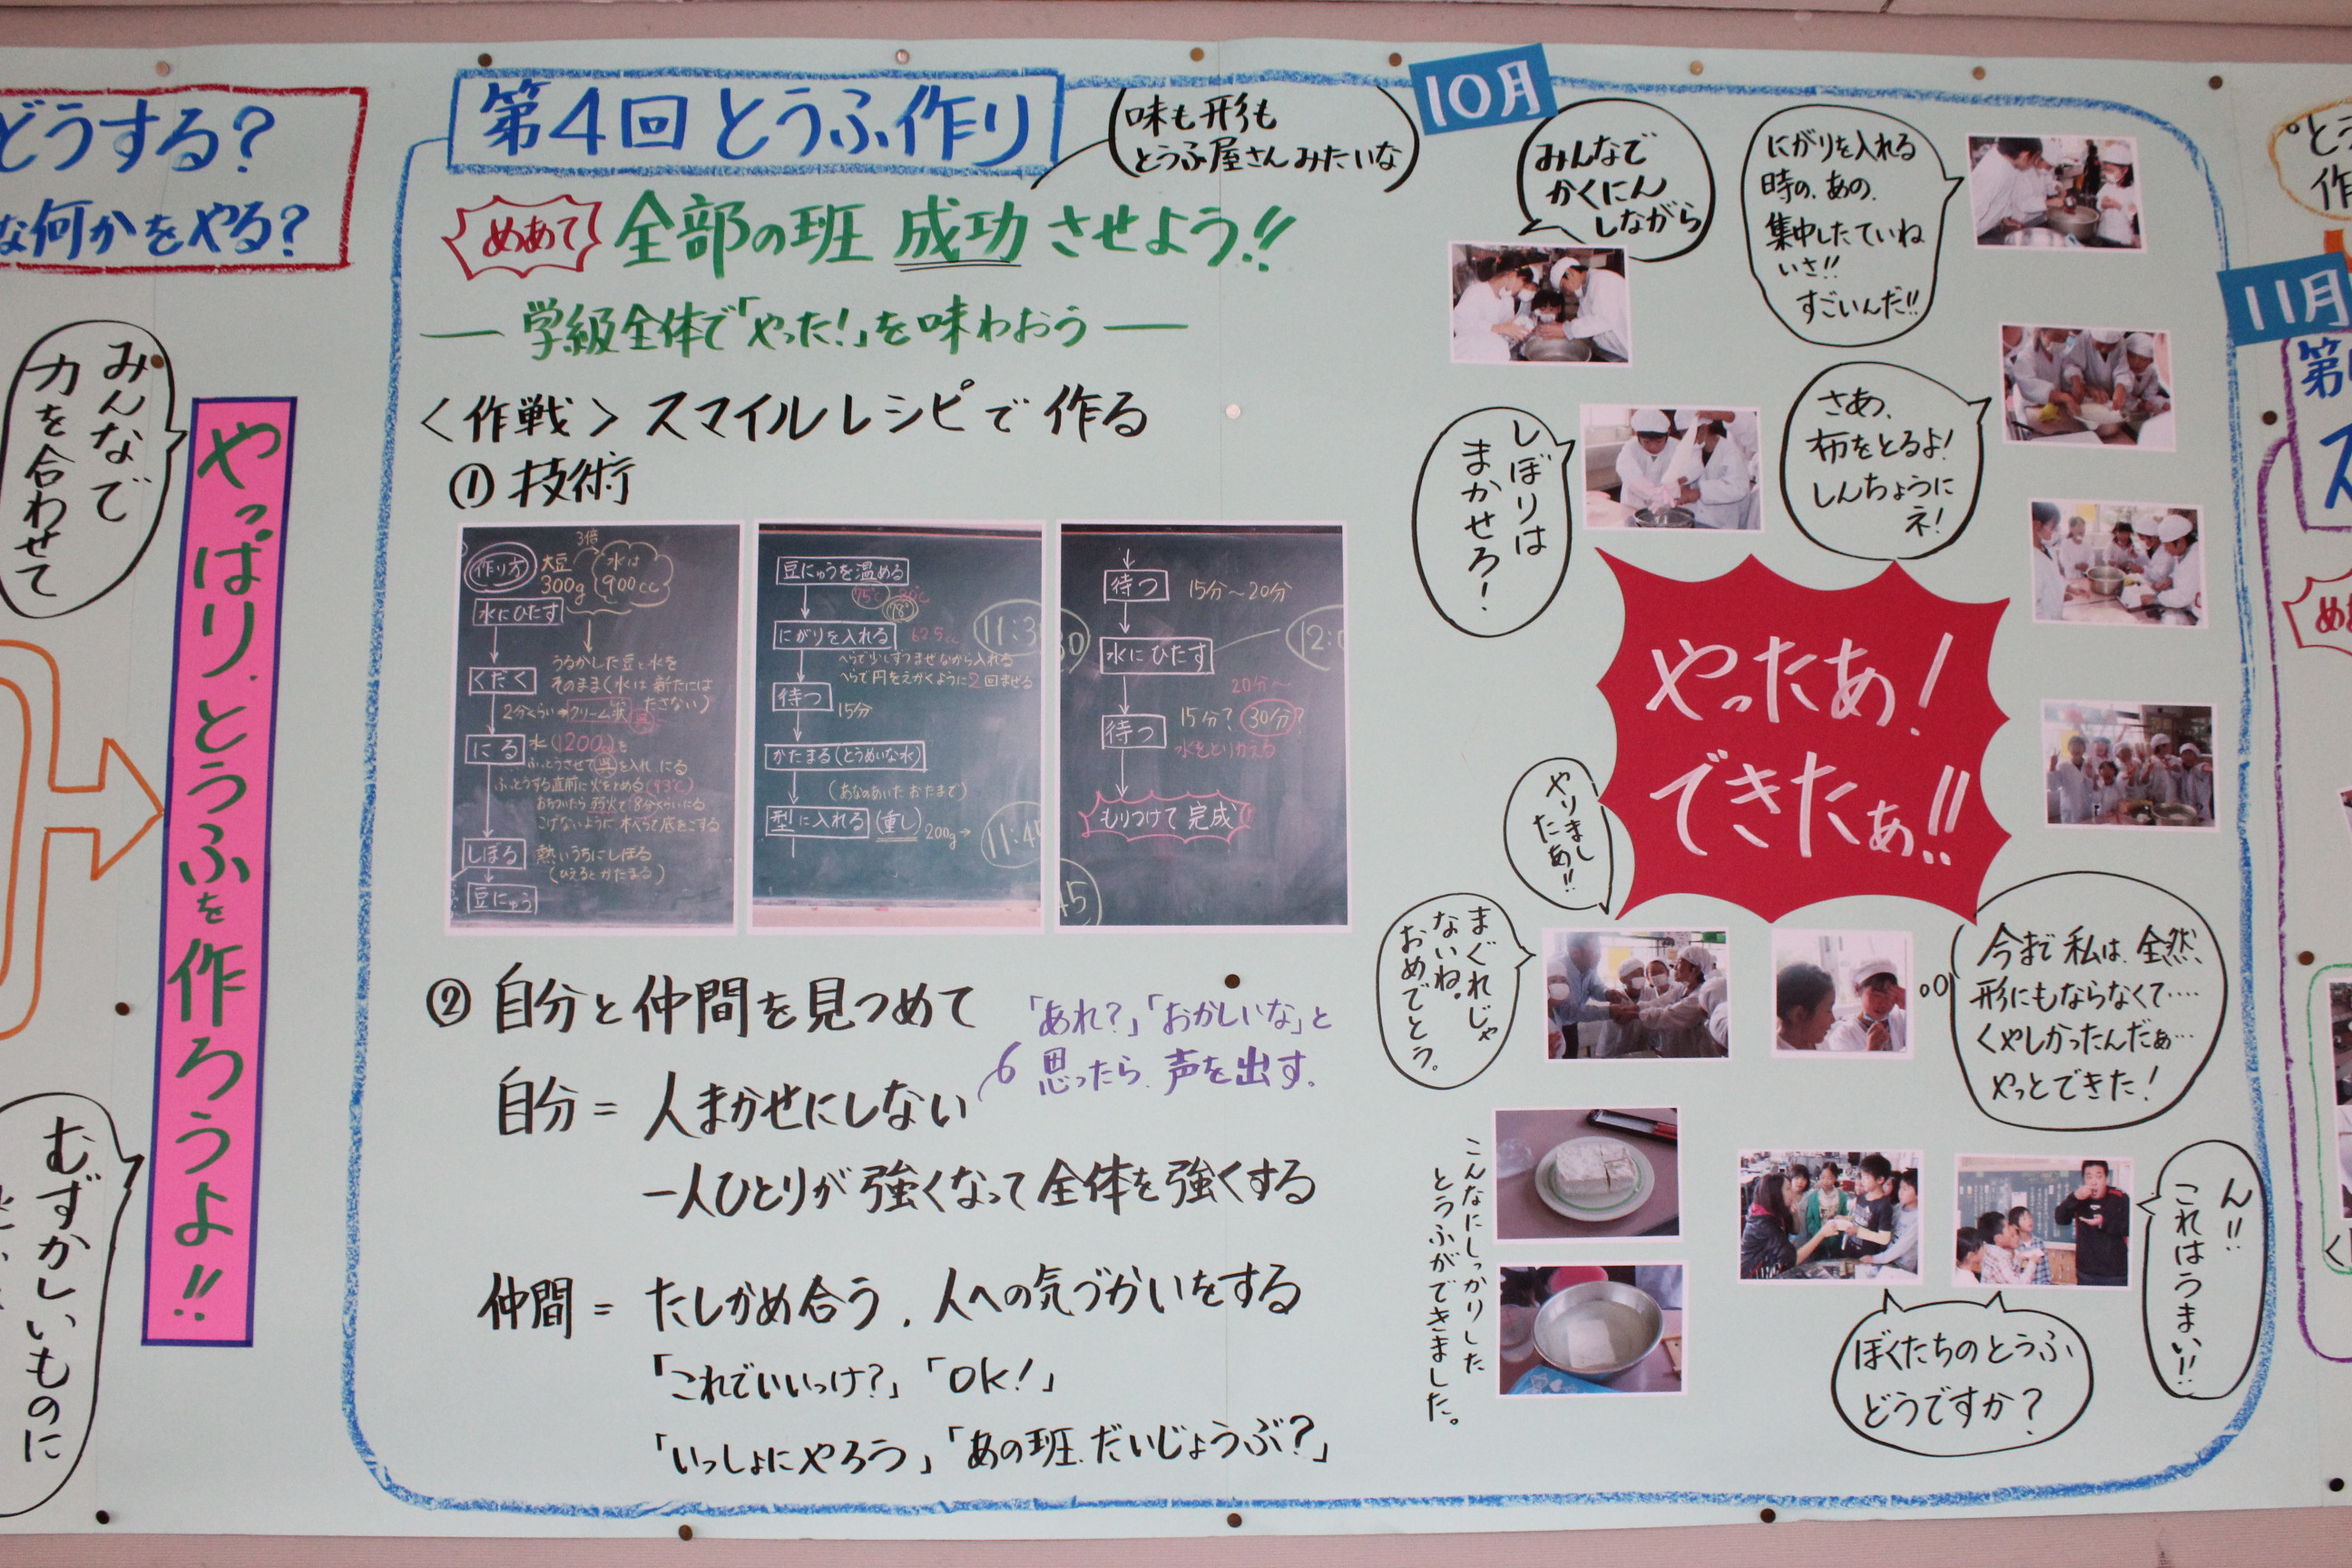 どうする?
な何かをやる?
みんなで
力を合わせて
やっぱり、とうふを作ろうよ!!
むずかしいものに
第4回とうふ作り
(味も形も
とうふ屋さんみたいな)
10月
めあて 全部の班 成功 させよう!!
— 学級全体で「やった!」を味わおう —
<作戦> スマイルレシピで作る
① 技術
作り方
大豆
300g
3倍
水は
900cc
水にひたす
うるかした豆と水を
そのまま(水は新たには
たさない)
くだく
2分くらい→クリーム状
にる
水1200gを
ふっとうさせて呉を入れ、にる
ふっとうする直前に火をとめる(93℃)
おちついたら弱火で8分くらいにる
こげないように木べらで底をこする
しぼる
熱いうちにしぼる
(ひえるとかたまる)
豆にゅう
豆にゅうを温める
75℃
78°
にがりを入れる
62.5cc
へらで少しずつまぜながら入れる
へらで円をえがくように2回まぜる
待つ 15分
かたまる(とうめいな水)
(あなのあいたおたまで)
型に入れる(重し) 200g→
待つ 15分〜20分
水にひたす
20分〜
待つ 15分? 30分?
水をとりかえる
もりつけて 完成
② 自分と仲間を見つめて
自分 = 人まかせにしない
「あれ?」「おかしいな」と
思ったら、声を出す。
一人ひとりが強くなって全体を強くする
仲間 = たしかめ合う、人への気づかいをする
「これでいいっけ?」「OK!」
「いっしょにやろう」「あの班、だいじょうぶ?」
みんなで
かくにん
しながら
にがりを入れる
時の、あの、
集中したていね
いさ!!
すごいんだ!!
しぼりは
まかせろ!
さあ、
布をとるよ!
しんちょうに
ネ!
やったあ!
できたぁ!!
やりまし
たあ!!
まぐれじゃ
ないね。
おめでとう。
今まで私は、全然、
形にもならなくて‥‥
くやしかったんだぁ…
やっとできた!
こんなにしっかりした
とうふができました。
ぼくたちのとうふ
どうですか?
ん!!
これはうまい!!
11月
第